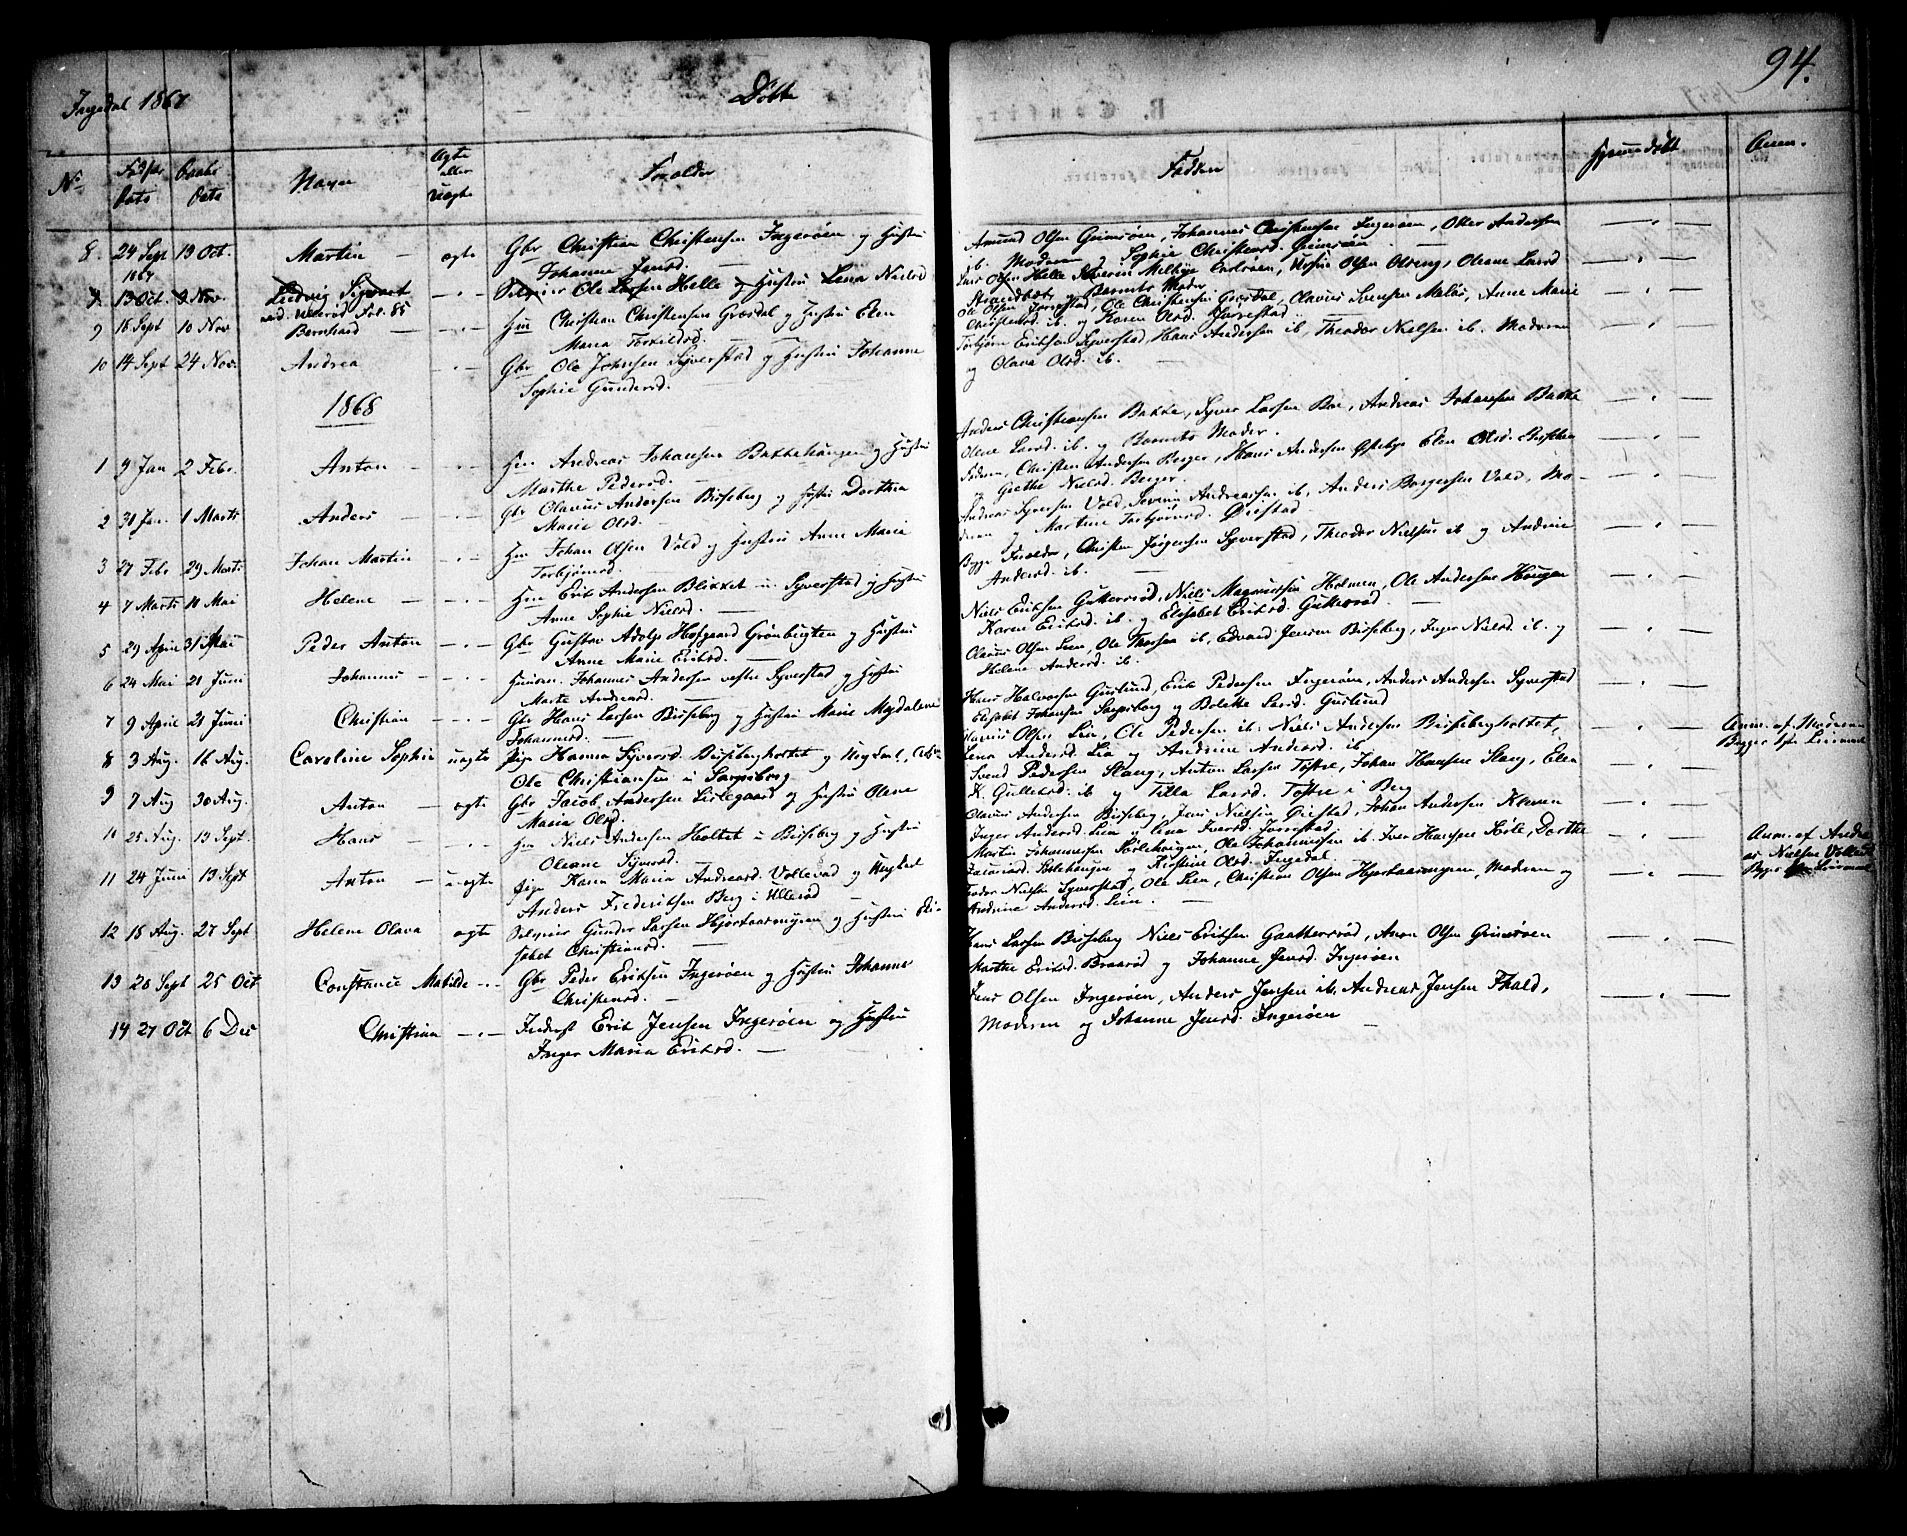 Ingedal 1867
Døbte
94.
No
Fødsels Dato
Daabs Dato
Navn
Ægte eller Uægte
Forældre
Faddere
Hjemmedøbt
Anm.
8. 24 Sept 13 Oct. Martin — ægte Gbr Christian Christensen Ingerøen og Hustru
Johanne Jensd.
Amund Olsen Grimsøen, Johannes Christensen Ingerøen, Otter Andersen
ib. Moderen, Sophie Christensd. Grimsøen
1867
9. 13 Oct. 3 Nov. Ludvig Sigvart — " — Selveier Ole Larsen Helle og Hustru Lena Nielsd
ved Ullerød Fol. 85
Lars Olsen Helle, Olsen Olseng, Oleane Larsd
Barnets Moder
9 18 Sept 10 Nov Bernhard — " — Hm Christian Christensen Græsdal og Hustru Elen
Maria Torkildsd.
Ole Olsen Jorrestad, Ole Christensen Græsdal, Olavus Svensen Anne Marie
Christensd. ib. og Karen Olsd. Jorrestad
10 14 Sept 24 Nov. Andrea — " — Gbr Ole Johnsen Syverstad og Hustru Johanne
Sophie Gundersd.
Torbjørn Eriksen Syverstad, Hans Andersen ib, Theodor Nielsen ib. Moderen
og Olava Olsd. ib.
1868
1 9 Jan 2 Febr. Anton — " — Hm Andreas Johansen Bakkehaugen og Hustru
Marthe Pedersd.
Anders Christiansen Bakke, Syver Larsen Boe, Andreas Johansen Bakke
Olene Larsd. ib. og Barnets Moder.
2 31 Jan. 1 Marts Anders — " — Gbr Olavus Andersen Bisseberg og Hustru Dorthea
Marie Olsd.
Faderen, Christen Andersen Berger, Hans Andersen Østebye Elen Olsd.
og Grethe Nielsd. Berger.
3 27 Febr 29 Marts Johan Martin — " — Hm Johan Olsen Vold og Hustru Anne Marie
Torbjørnsd.
Andreas Syversen Vold, Severin Andreassen ib, Anders Borgersen Vold, Mo-
deren og Martine Torbjørnsd. Øiestad.
4 7 Marts 10 Mai Helene — " — Hm Erik Andersen Blikket u. Syverstad og Hustru
Anne Sophie Nielsd.
Begge Forældre, Christen Jørgensen Syverstad, Theodor Nielsen ib og Andrine
Andersd. ib.
5 29 April 31 Mai Peder Anton — " — Gbr Gustav Adolp Hofgaard Grønbugten og Hustru
Anne Marie Eriksd.
Niels Eriksen Guttersrød, Niels Magnussen Holmen, Ole Andersen Haugen
Karen Eriksd. ib. og Elisabet Eriksd. Guttersrød.
6 24 Mai 21 Juni Johannes — " — Huusm. Johannes Andersen vestre Syverstad og Hustru
Marte Andreasd.
Olavus Olsen Lien, Ole Thorsen ib, Edvard Jensen Bisseberg, Inger Nielsd. ib. og
Helene Andersd. ib.
7 9 April 21 Juni Christian — " — Gbr Hans Larsen Bisseberg og Hustru Marie Magdalene
Johannesd.
Hans Halvorsen Guslund, Erik Pedersen Ingerøen, Anders Andersen Syverstad
Elisabet Johansen Sarpsborg og Bolette Larsd. Guslund
8 3 Aug. 16 Aug. Caroline Sophie uægte Pige Hanna Syversd. Bissebergholtet og Ungkarl,
Ole Christiansen i Sarpsborg
Olavus Olsen Lien, Ole Pedersen ib. Niels Andersen Bissebergholtet,
Lena Andersd. Lie og Andrine Andersd. ib
Anm. af Moderen
Begges 1ste Leiermaal
9 7 Aug 30 Aug. Anton — ægte Gbr Jacob Andersen Lislegaard og Hustru Olene
Maria Olsd
Svend Pedersen Slang, Anton Larsen Tostre, Johan Hansen Slang, Elen
K. Gulliksd. ib og Tilla Larsd. Tostre i Berg
10 25 Aug. 13 Sept. Hans — " — Hm Niels Andersen Holtet u Bisseberg og Hustru
Oleane Syversd.
Olavus Andersen Bisseberg, Jens Nielsen Øiestad, Johan Andersen
Inger Andersd. Lien og Lena Iversd. Jorrestad
11 24 Juni 13 Sept Anton — uægte Pige Karen Maria Andreasd. Vollevad og Ungkarl
Anders Frederiksen Berg i Ullerød
Martin Johannessen Solehougen, Ole Johannessen ib. Iver Hansen Dorthe
Solehaugen og Kirstine Olsd. Ingedal
Anm. af Andre-
as Nielsen Vollevad
Begges Leiermaal
12 18 Aug. 27 Sept Helene Olava ægte Selveier Gunder Larsen Hjortaasmyren og Hustru Eli-
sabet Christiansd.
Theodor Nielsen Syverstad, Ole Lien, Christian Olsen Hjortaasmyren, Moderen og
Andrine Andersd. Lien.
13 20 Sept 25 Oct Constance Matilde — " — Gbr Peder Eriksen Ingerøen og Hustru Johanne
Christensd.
Hans Larsen Bisseberg Niels Eriksen Gautterrød, Amon Olsen Grimsøen
Marthe Eriksd. Braarød og Johanne Jensd. Ingerøen
14 27 Oct 6 Dec Christian — " — Inderst Erik Jensen Ingerøen og Hustru
Inger Maria Eriksd.
Jens Olsen Ingerøen, Anders Jensen ib. Andreas Jensen
Moderen og Johanne Jensd. Ingerøen